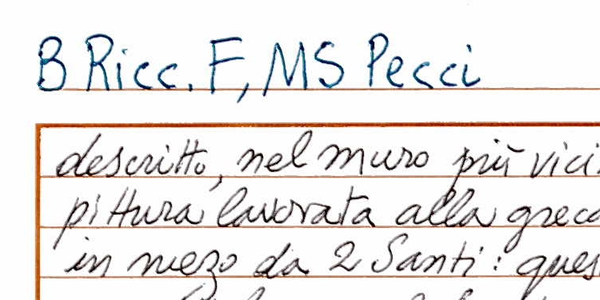 B Ricc. F, MS Pecci
descritto, nel muro più vici
pittura lavorata alla greca
in mezo da 2 Santi: ques